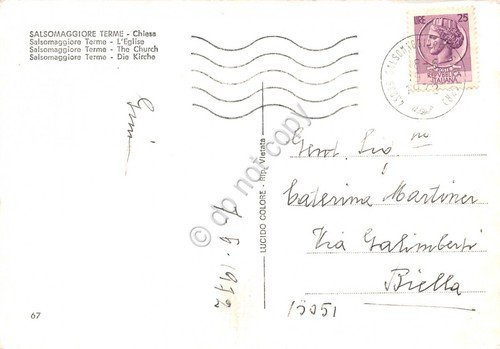 SALSOMAGGIORE TERME - Chiesa
Salsomaggiore Terme - L'Eglise
Salsomaggiore Terme - The Church
Salsomaggiore Terme - Die Kirche
LIRE 25
REPVBBLICA
ITALIANA
LUCIDO COLORE - Rip. Vietata
do not copy
Caterina Martiner
Via Galimberti
Biella
13051
67